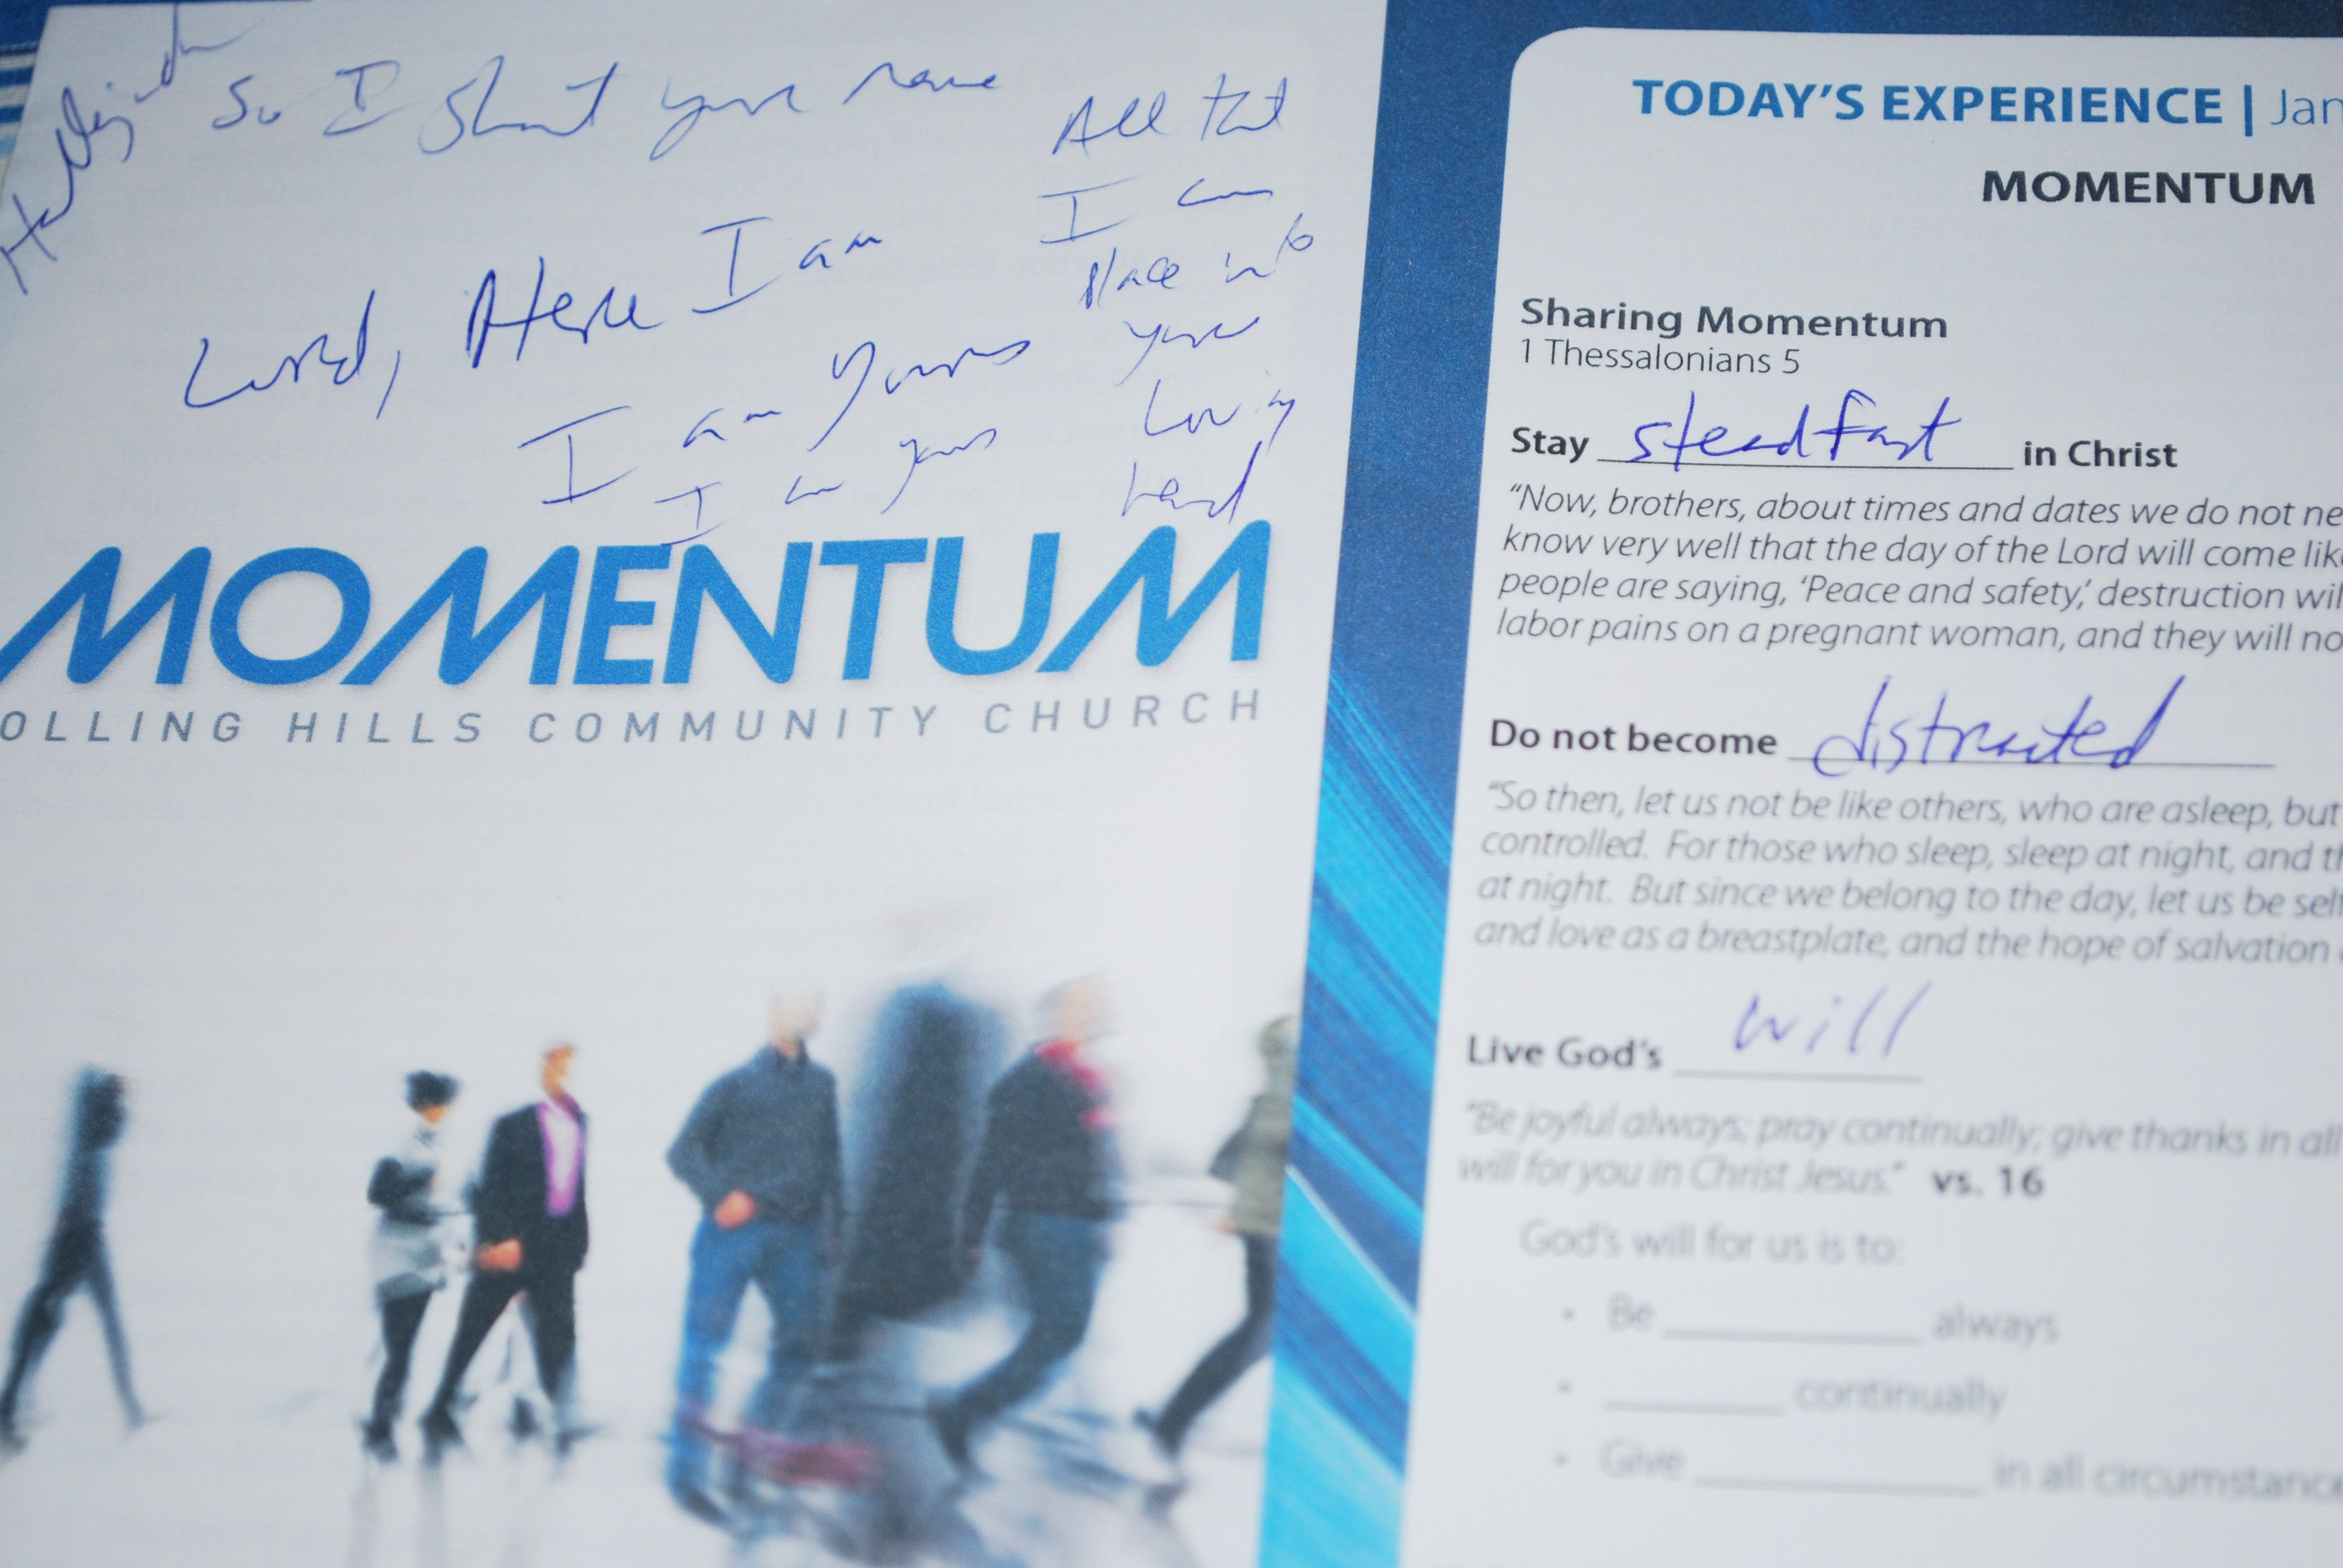 Hallelujah
So I Shout your name
Lord, Here I am
I am yours
I am yours
All that
I am
Place into
your
Loving
hand
MOMENTUM
OLLING HILLS COMMUNITY CHURCH
TODAY'S EXPERIENCE | Jan
MOMENTUM
Sharing Momentum
1 Thessalonians 5
Stay steadfast in Christ
“Now, brothers, about times and dates we do not ne
know very well that the day of the Lord will come like
people are saying, ‘Peace and safety,’ destruction wil
labor pains on a pregnant woman, and they will no
Do not become distracted
“So then, let us not be like others, who are asleep, but
controlled. For those who sleep, sleep at night, and th
at night. But since we belong to the day, let us be self
and love as a breastplate, and the hope of salvation
Live God's will
“Be joyful always; pray continually; give thanks in all
will for you in Christ Jesus.” vs. 16
God's will for us is to:
• Be ____________ always
• ________ continually
• Give ____________ in all circumstance